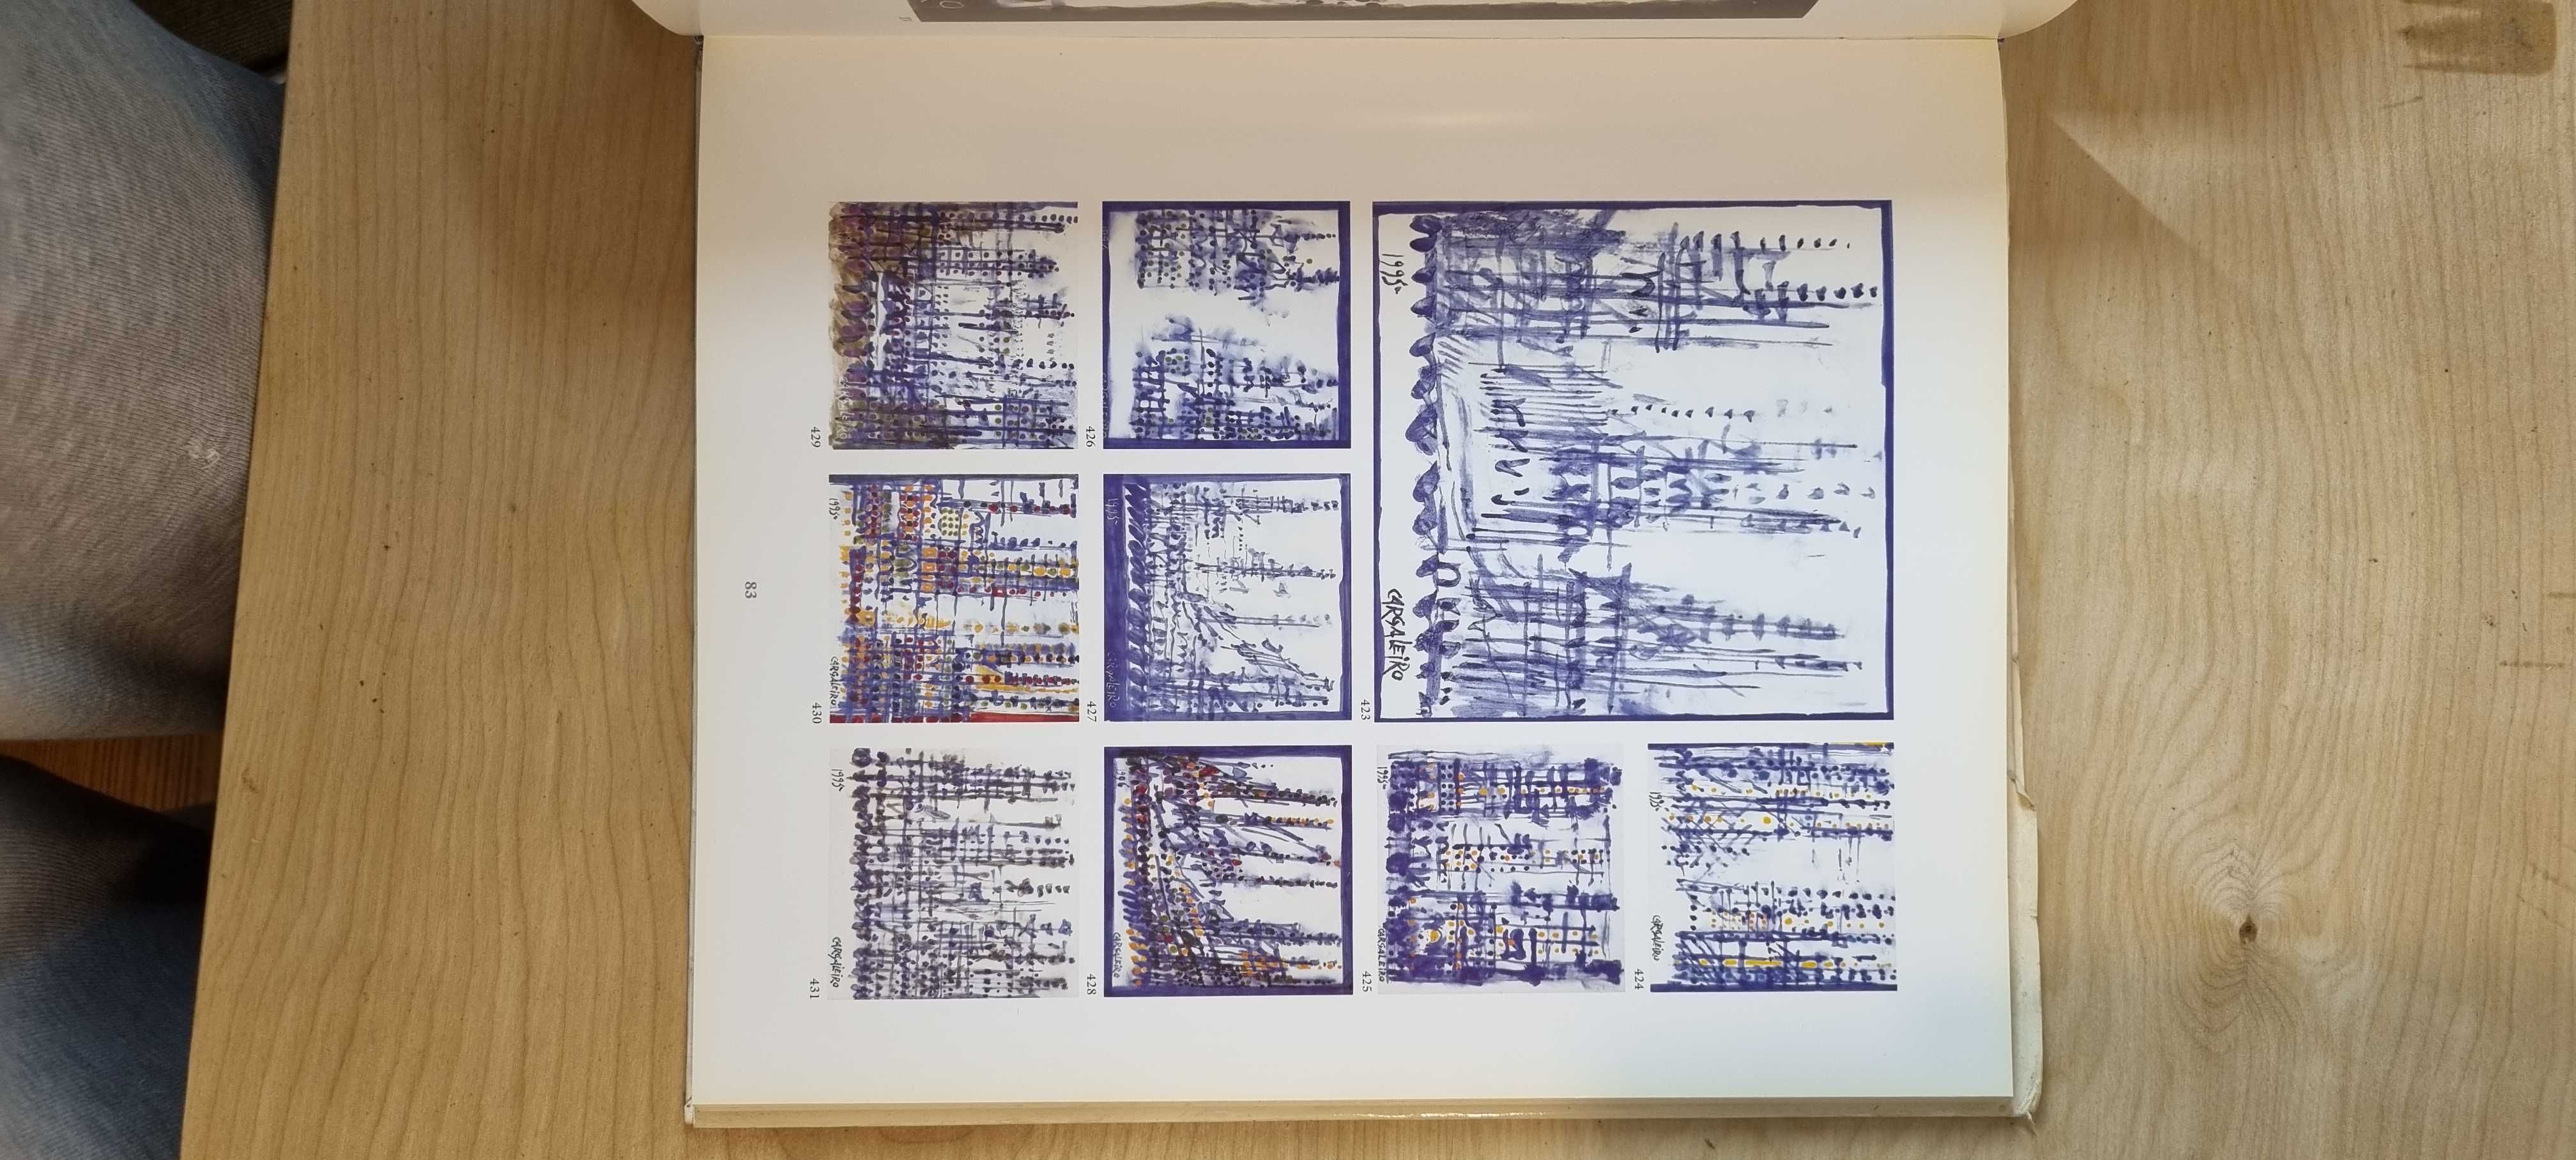 1995
CARGALEIRO
423
1995
CARGALEIRO
424
1995
CARGALEIRO
425
426
1995
CARGALEIRO
427
CARGALEIRO
428
429
1995
CARGALEIRO
430
1995
CARGALEIRO
431
83